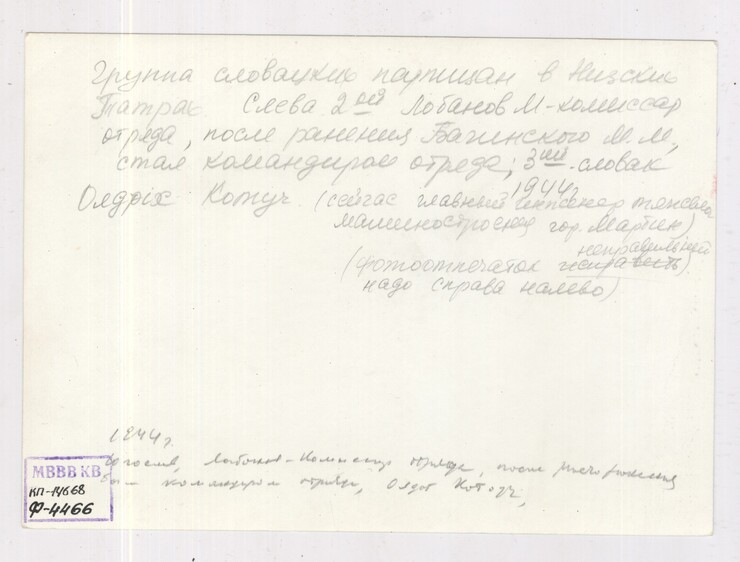 Группа словацких партизан в Низких
Татрах. Слева 2ой Лобанов М-комиссар
отряда, после ранения Багинского М.М,
стал командиром отряда; 3ий-словак
1944г.
Олдріх Котуч. (сейчас главный инженер
машиностроения гор. Мартин)
неправильный
(фотоотпечаток
надо справа налево)
1944г.
Лобанов-комиссар отряда, после
командиром отряда, Котуч,
МВВВ КВ
КП-14668
Ф-4466